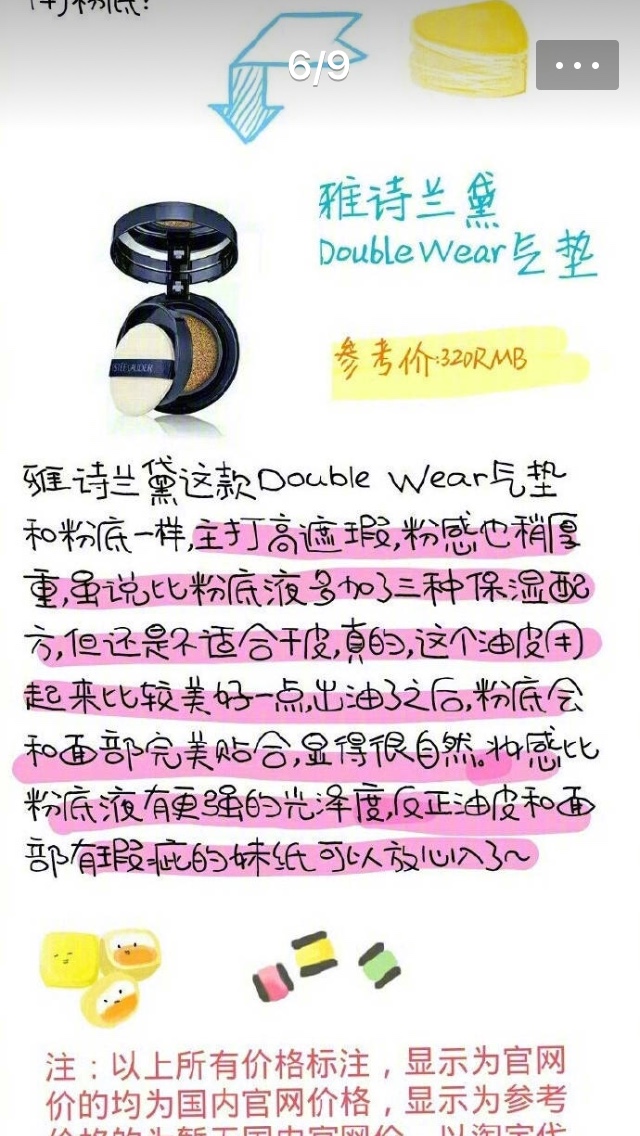 粉底：
6/9
雅诗兰黛
Double Wear气垫
参考价:320RMB
ESTEE LAUDER
雅诗兰黛这款Double Wear气垫
和粉底一样,主打高遮瑕,粉感也稍厚
重,虽说比粉底液多加了三种保湿配
方,但还是不适合干皮,真的,这个油皮用
起来比较美好一点,出油了之后,粉底会
和面部完美贴合,显得很自然。妆感比
粉底液有更强的光泽度,反正油皮和面
部有瑕疵的妹纸可以放心入了~
注：以上所有价格标注，显示为官网
价的均为国内官网价格，显示为参考
价格的为暂无国内官网价，以淘宝代